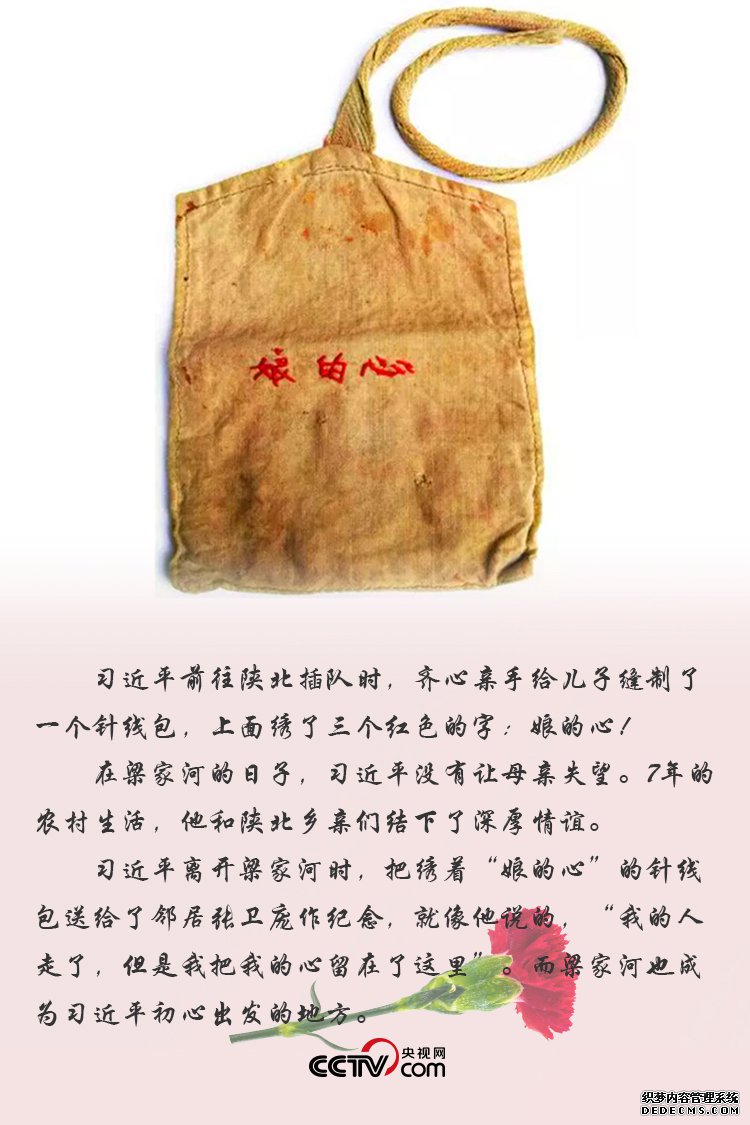 娘的心
习近平前往陕北插队时，齐心亲手给儿子缝制了
一个针线包，上面绣了三个红色的字：娘的心！
在梁家河的日子，习近平没有让母亲失望。7年的
农村生活，他和陕北乡亲们结下了深厚情谊。
习近平离开梁家河时，把绣着“娘的心”的针线
包送给了邻居张卫庞作纪念，就像他说的，“我的人
走了，但是我把我的心留在了这里”。而梁家河也成
为习近平初心出发的地方。
CCTV.com 央视网
织梦内容管理系统
DEDECMS.COM